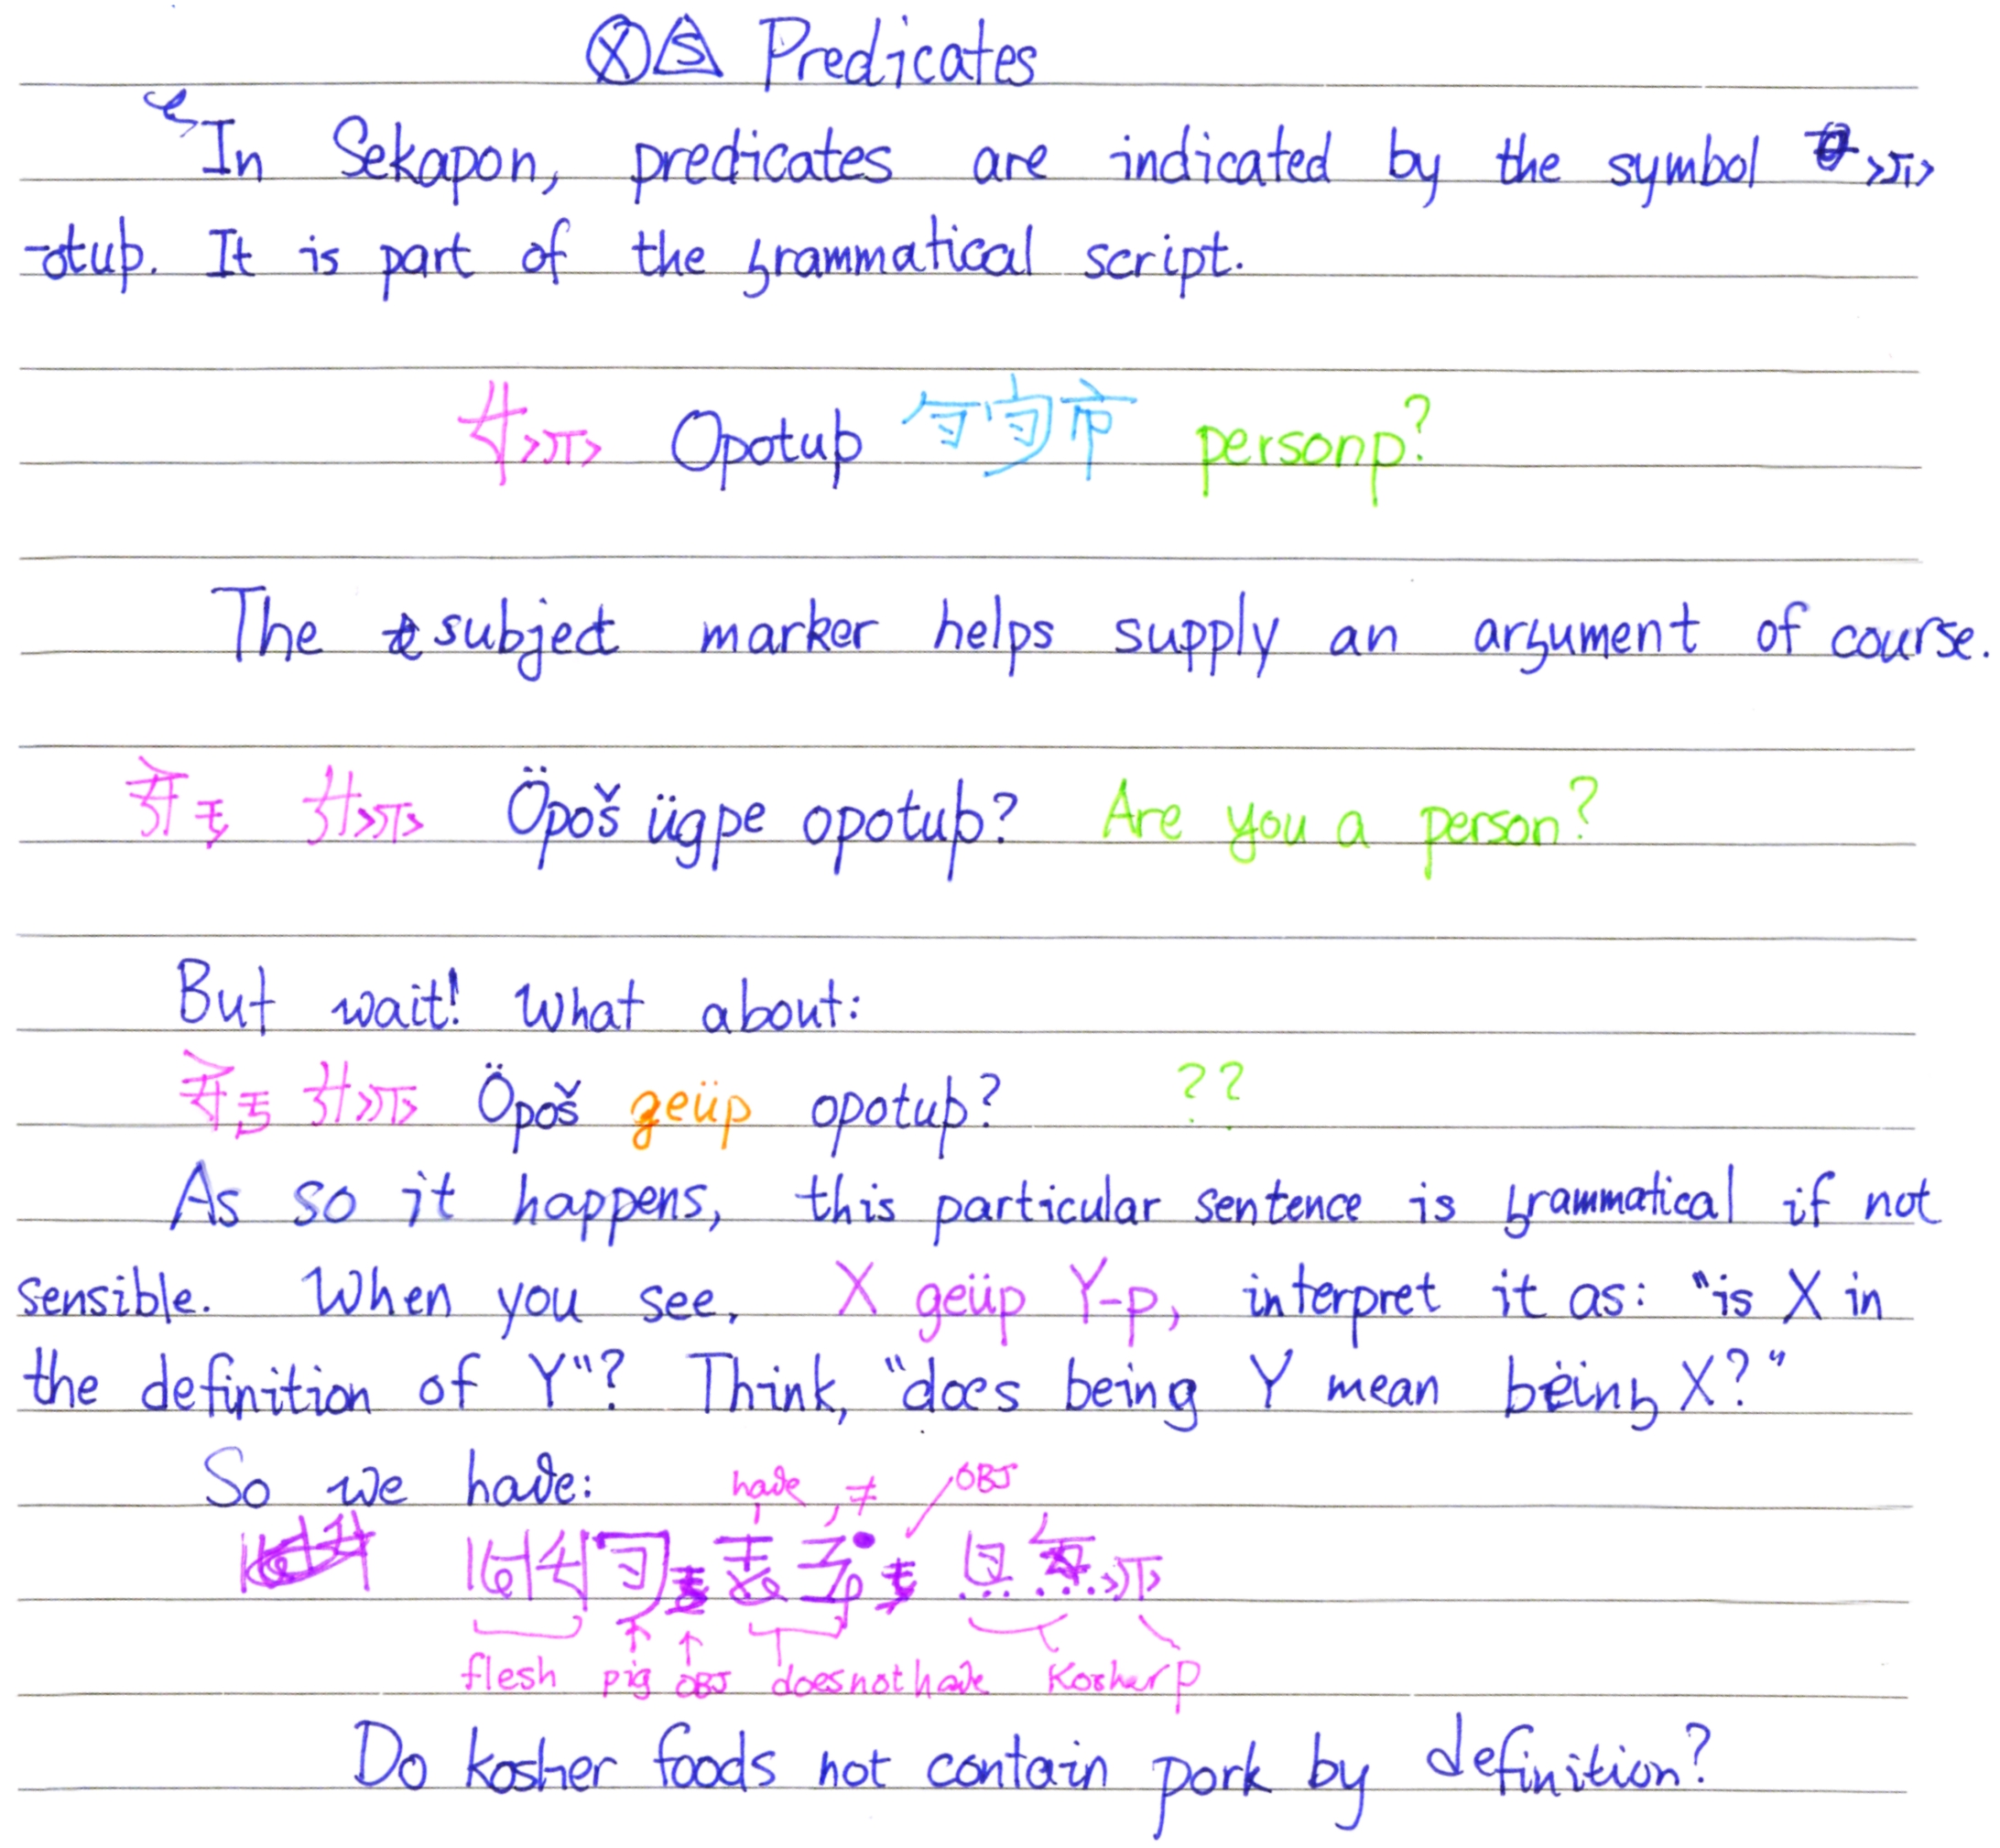 Ⓧ Predicates
In Sekapon, predicates are indicated by the symbol
-otup. It is part of the grammatical script.
Opotup personp?
The subject marker helps supply an argument of course.
Öpoš ügpe opotup? Are you a person?
But wait! What about:
Öpoš geüp opotup? ??
As so it happens, this particular sentence is grammatical if not
sensible. When you see, X geüp Y-p, interpret it as: "is X in
the definition of Y"? Think, "does being Y mean being X?"
So we have:
have ≠ OBJ
flesh pig OBJ does not have Kosher p
Do kosher foods not contain pork by definition?